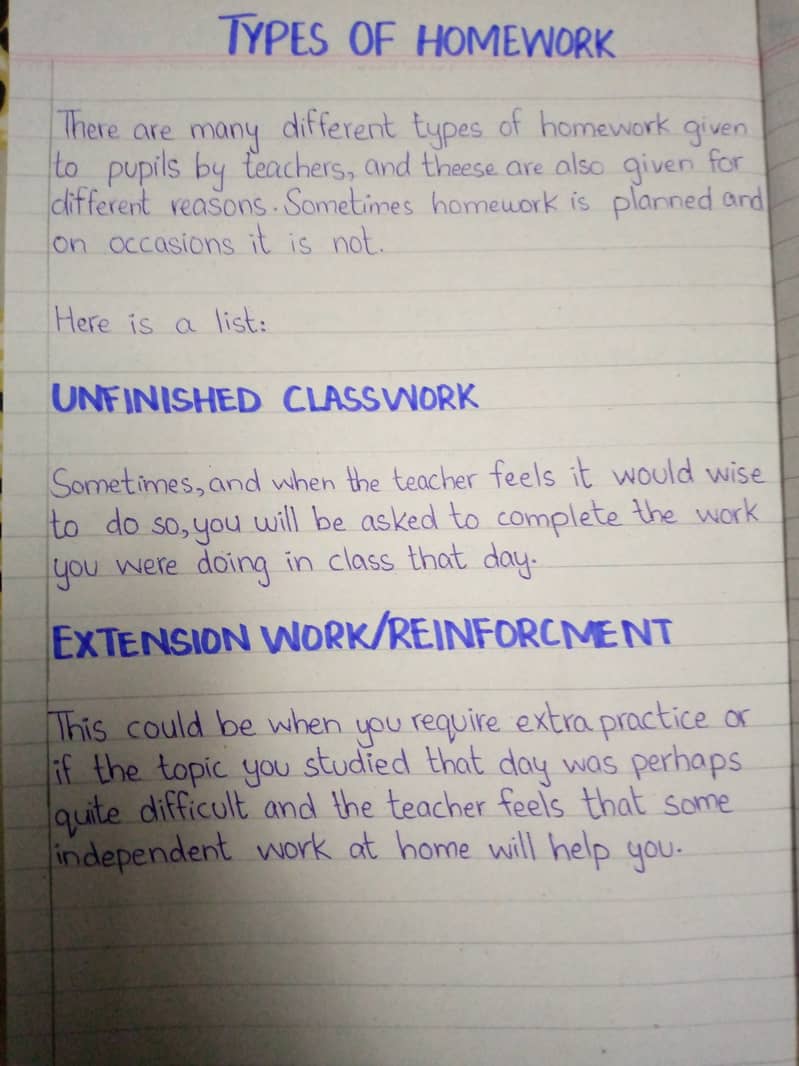 TYPES OF HOMEWORK
There are many different types of homework given
to pupils by teachers, and theese are also given for
different reasons. Sometimes homework is planned and
on occasions it is not.
Here is a list:
UNFINISHED CLASSWORK
Sometimes, and when the teacher feels it would wise
to do so, you will be asked to complete the work
you were doing in class that day.
EXTENSION WORK/REINFORCMENT
This could be when you require extra practice or
if the topic you studied that day was perhaps
quite difficult and the teacher feels that some
independent work at home will help you.